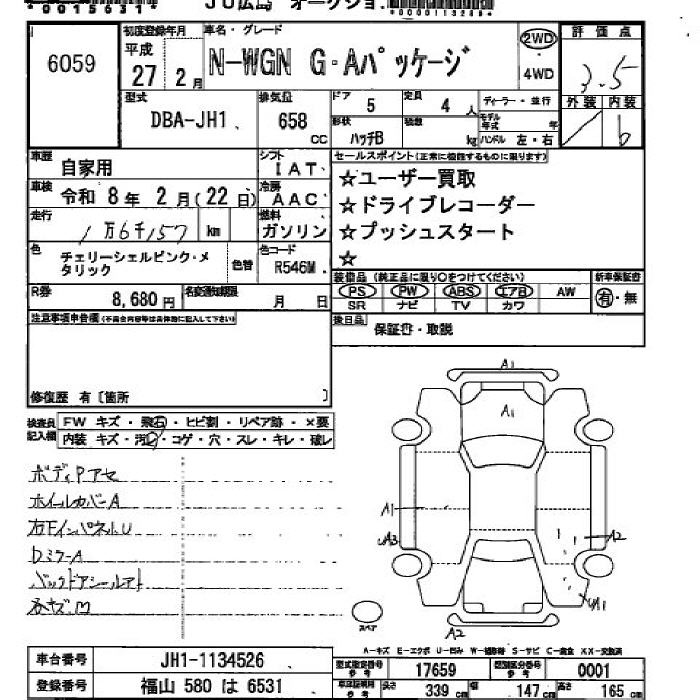 JU広島 オークション
6059
初度登録年月
平成
27 2月
車名・グレード
N-WGN G・Aパッケージ
2WD
4WD
評価点
3.5
外装 内装
b
型式
DBA-JH1
排気量
658 CC
ドア 5
定員 4 人
ディーラー・並行
形状 ハッチB
積数 kg
モデル年式 年
ハンドル 左・右
車歴 自家用
シフト IAT
車検 令和 8年 2月(22日)
冷房 AAC
走行 1万6千157 km
燃料 ガソリン
色 チェリーシェルピンク・メタリック
色替
色コード R546M
R券 8,680円
名変通知期限 月 日
セールスポイント(正常に機能するものに限ります)
☆ユーザー買取
☆ドライブレコーダー
☆プッシュスタート
☆
装備品(純正品に限り○をつけてください)
新車保証書
PS PW ABS エアB AW
SR ナビ TV カワ
有・無
後日品 保証書・取説
注意事項申告欄(不具合内容等は具体的に記入して下さい)
修復歴 有〔箇所 〕
検査員記入欄
FW キズ・飛石・ヒビ割・リペア跡・×要
内装 キズ・汚レ・コゲ・穴・スレ・キレ・破レ
ボディPアセ
ホイールカバーA
右FインパネルU
DミラーA
バックドアシールアト
各キズ.M
A1
A1
A1
A3
A2
UA1
A2
スペア
A-キズ E-エクボ U-凹み W-補修跡 S-サビ C-腐食 XX-交換済
車台番号 JH1-1134526
登録番号 福山 580 は 6531
型式指定番号 参考 17659
類別区分番号 参考 0001
車庫証明用 参考 長さ 339 cm 幅 147 cm 高さ 165 cm